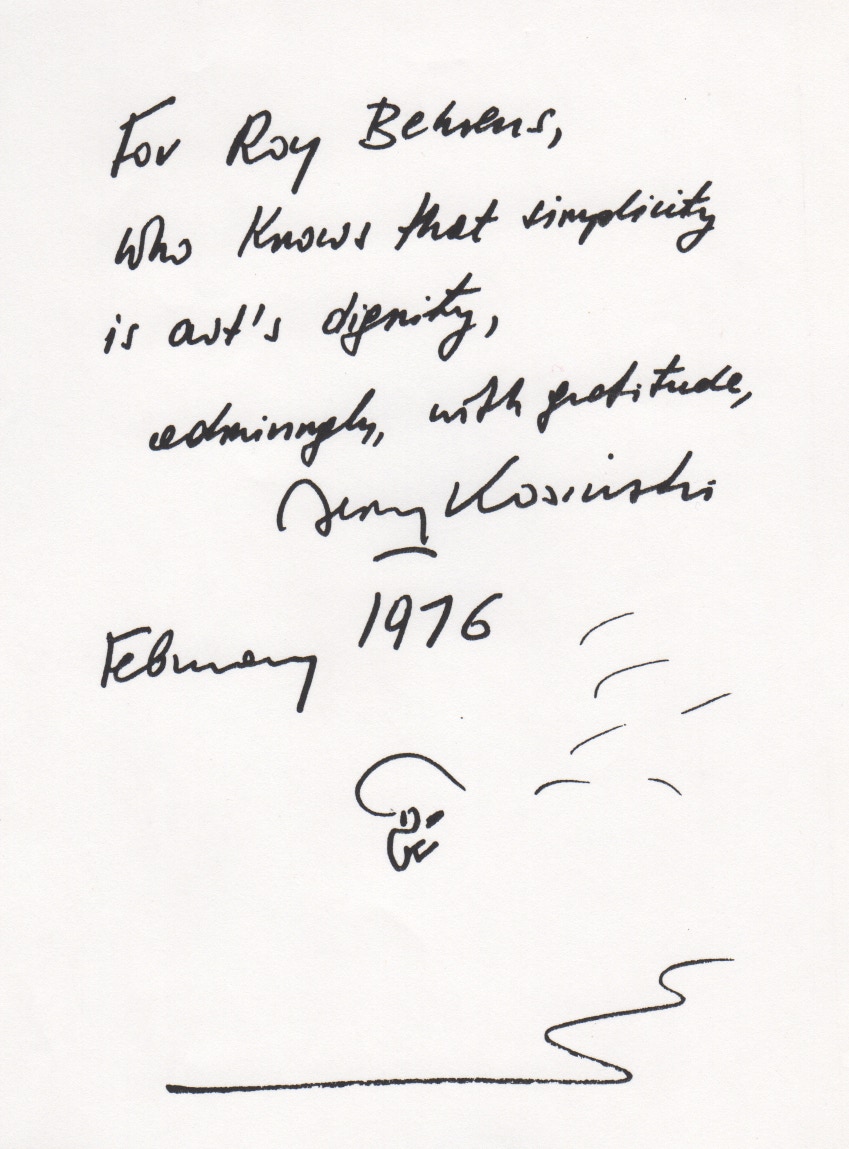 For Roy Behrens,
who knows that simplicity
is art's dignity,
admiringly, with gratitude,
Jerzy Kosinski
February 1976